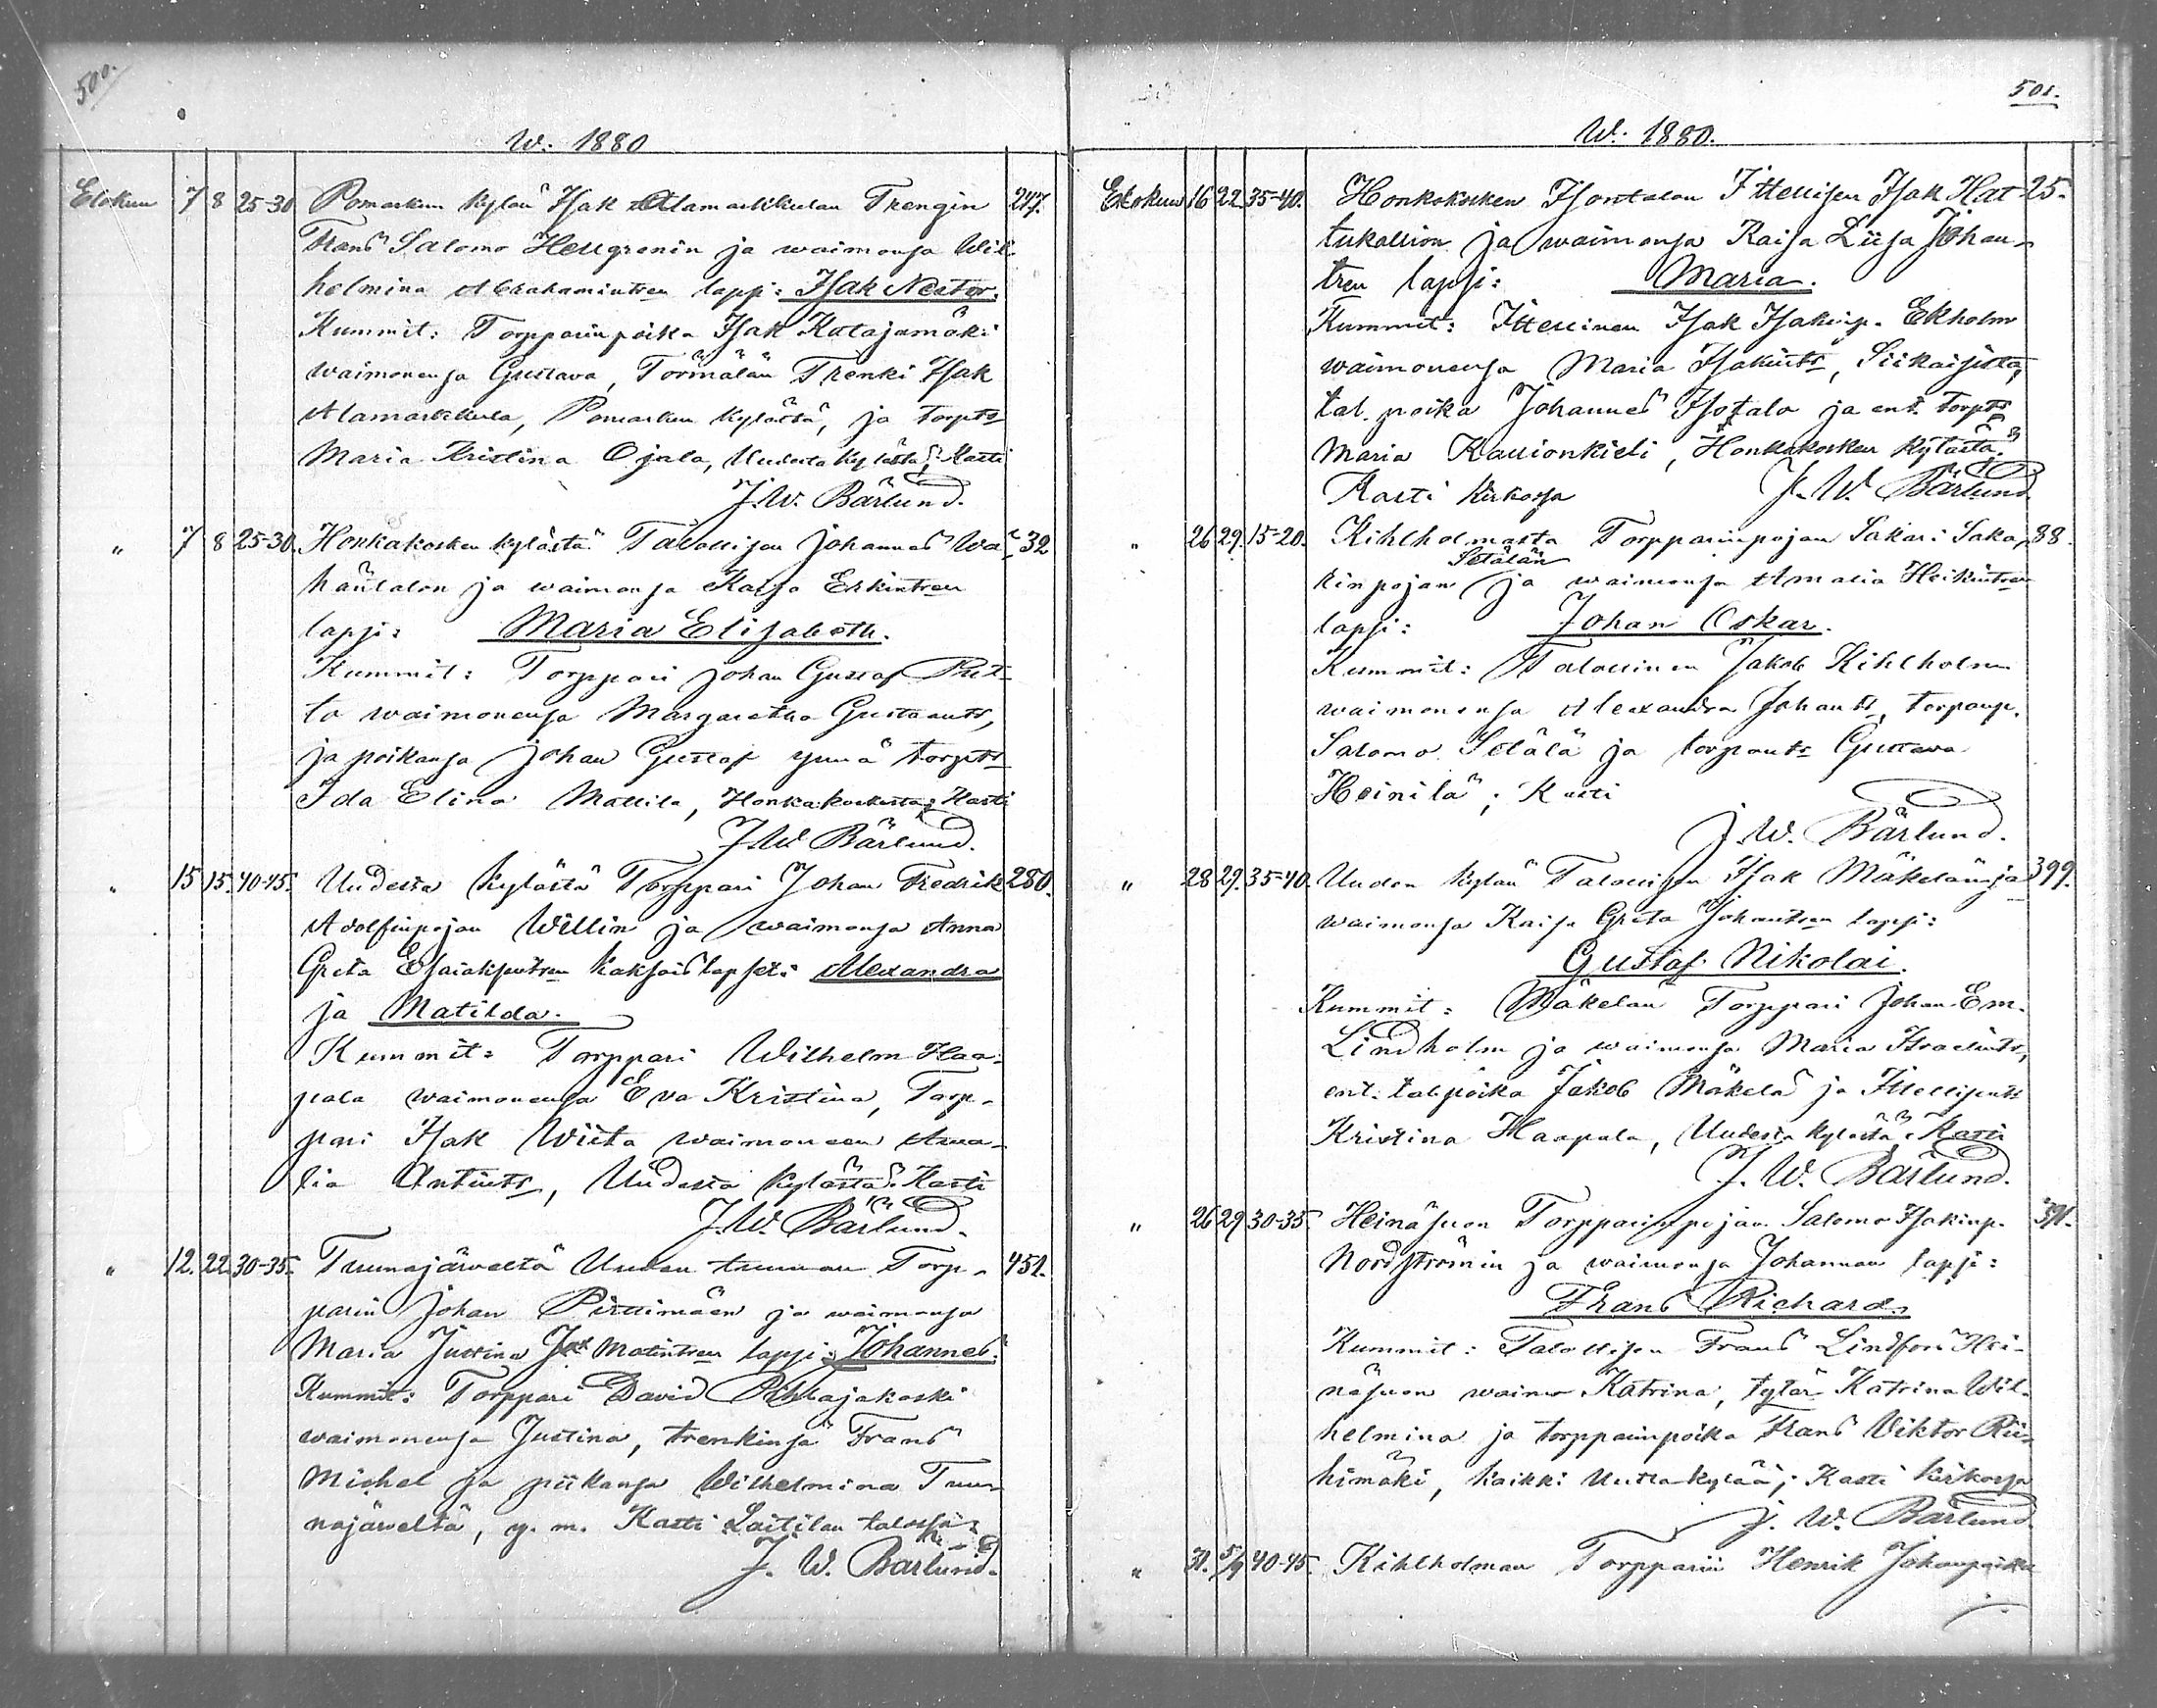 500.
W. 1880
Elokuu 7 8 25-30 Pomarkun kylän Isak Alamarkkulan Trengin 247.
Frans Salomo Hellgrenin ja waimonsa Wil-
helmina Abrahamintren lapsi: Isak Nestor.
Kummit: Torpparinpoika Isak Katajamäki
waimonensa Gustava, Törmälän Trenki Isak
Alamarkkula, Pomarkun kylästä, ja torpts
Maria Kristina Ojala, Uudesta kylästä; Kasti
J. W. Bärlund.
" 7 8 25-30. Honkakosken kylästä Talollisen Johannes Wä- 32
häntalon ja waimonsa Kaisa Erkintren
lapsi: Maria Elisabeth.
Kummit: Torppari Johan Gustaf
to waimonensa Margaretha Gustaants,
ja poikansa Johan Gustaf ynnä torpts
Ida Elina Mattila, Honkakoskesta; Kasti
J. W. Bärlund.
" 15 15. 40-45. Uudesta kylästä Torppari Johan Fredrik 280.
Adolfinpojan Willin ja waimonsa Anna
Greta Esaiaksentren kaksoislapset: Alexandra
ja Matilda.
Kummit: Torppari Wilhelm Haa-
pala waimonensa Eva Kristina, Torp-
pari Isak Wiita waimoneen Ama-
lia Antints, Uudesta kylästä. Kasti
J. W. Bärlund.
" 12. 22. 30-35. Tuunajärweltä Uuden tuunan Torp- 451.
parin Johan Pirttimäen ja waimonsa
Maria Justina Matintren lapsi: Johannes.
Kummit: Torppari David Pihlajakoski
waimonensa Justina, trenkinsä Frans
Michel ja piikansa Wilhelmina Tuu-
najärweltä, y. m. Kasti Laitilan talossa
J. W. Bärlund.
501.
W. 1880.
Elokuu 16 22. 35-40. Honkakosken Isontalon Ittellisen Isak Hat- 25.
tukallion ja waimonsa Kaisa Liisa Johan-
tren lapsi: Maria.
Kummit: Ittellinen Isak Isakinp. Ekholm
waimonensa Maria Isakints, Siikaisista,
tal. poika Johannes Isotalo ja ent. torpts
Maria Kallionkieli, Honkakosken kylästä.
Kasti kirkossa J. W. Bärlund
" 26 29. 15-20. Kihlholmasta Torpparinpojan Sakari Saka- 88.
Setälän
rinpojan ja waimonsa Amalia Heikintren
lapsi: Johan Oskar.
Kummit: Talollinen Jakob Kihlholm
waimonensa Alexandra Johants, torpanp.
Salomo Setälä ja torpants Gustava
Heinilä; Kasti
J. W. Bärlund.
" 28 29. 35-40. Uuden kylän Talollisen Isak Mäkelän ja 399.
waimonsa Kaisa Greta Johantren lapsi:
Gustaf Nikolai.
Kummit: Mäkelän Torppari Johan Em.
Lindholm ja waimonsa Maria Israelints,
ent. tal. poika Jakob Mäkelä ja Ittellisents
Kristina Haapala, Uudesta kylästä; Kasti
J. W. Bärlund.
" 26 29 30-35. Heinäsuon Torpparinpojan Salomo Isakinp.
Nordströmin ja waimonsa Johannan lapsi:
Frans Richard.
Kummit: Talollisen Frans Lindfors Hei-
näsuon waimo Katrina, tytär Katrina Wil-
helmina ja torpparinpoika Frans Viktor Rii-
himäki, kaikki Uutta kylää; Kasti kirkossa
J. W. Bärlund
" 31. 5/9 40-45. Kihlholman Torpparin Henrik Johanpoika